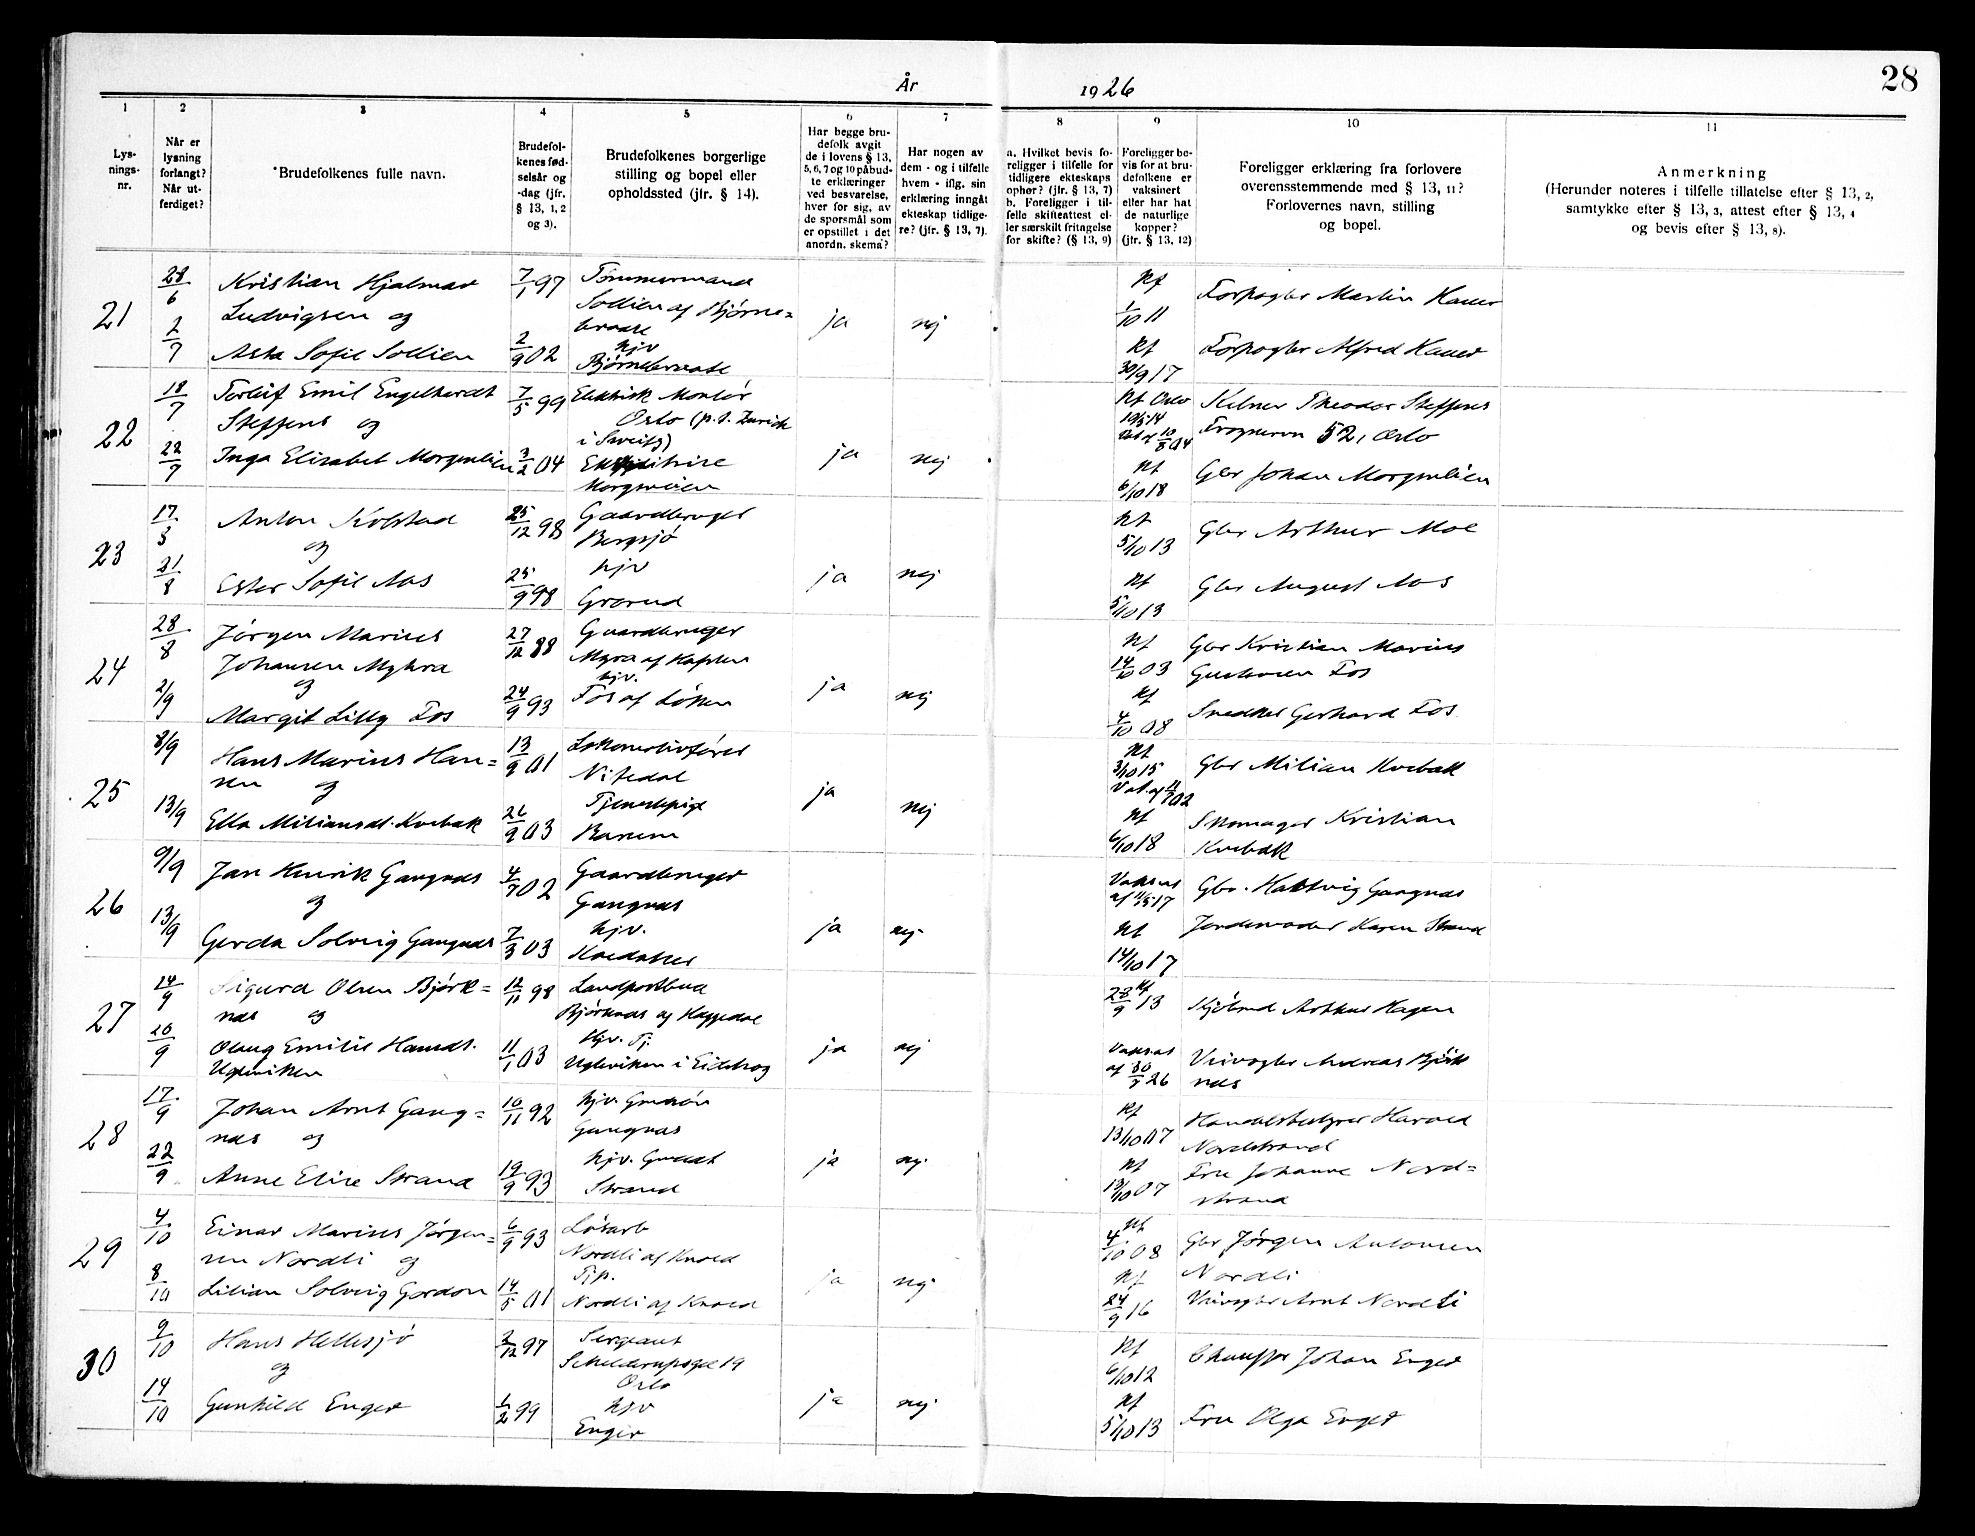 28
År 1926
1 2 3 4 5 6 7 8 9 10 11
Lys-
nings-
nr.
Når er
lysning
forlangt?
Når ut-
ferdiget?
Brudefolkenes fulle navn.
Brudefol-
kenes fød-
selsår og
-dag (jfr.
§ 13, 1, 2
og 3).
Brudefolkenes borgerlige
stilling og bopel eller
opholdssted (jfr. § 14).
Har begge bru-
defolk avgit
de i lovens § 13,
5, 6, 7 og 10 påbud-
te erklæringer
ved besvarelse,
hver for sig, av
de spørsmål som
er opstillet i det
anordn. skema?
Har nogen av
dem - og i tilfelle
hvem - iflg. sin
erklæring inngått
ekteskap tidlige-
re? (jfr. § 13, 7).
a. Hvilket bevis fo-
religger i tilfelle for
tidligere ekteskaps
ophør? (jfr. § 13, 7)
b. Foreligger i til-
felle skifteattest el-
ler særskilt fritagelse
for skifte? (§ 13, 9)
Foreligger be-
vis for at bru-
defolkene er
vaksinert
eller har hat
de naturlige
kopper?
(jfr. § 13, 12)
Foreligger erklæring fra forlovere
overensstemmende med § 13, 11?
Forlovernes navn, stilling
og bopel.
Anmerkning
(Herunder noteres i tilfelle tillatelse efter § 13, 2,
samtykke efter § 13, 3, attest efter § 13, 4
og bevis efter § 13, 8).
21
28/6
2/7
Kristian Hjalmar
Ludvigsen og
Asta Sofie Sollien
7/1 97
2/9 02
Tømmermand
Sollien af Bjørne=
braate
hjv
Bjørnebraate
ja
nej
Kf
1/10 11
Kf
30/9 17
Forpagter Martin Hauer
Forpagter Alfred Hauer
22
18/7
22/7
Torleif Emil Engelhardt
Steffens og
Inga Elisabet Morgenlien
7/5 99
3/2 04
Elektrisk Montør
Oslo (p.t. Zürich
i Sveits)
Morgenlien
ja
nej
Kf Oslo
Kf
6/10 18
Kelner Theodor Steffens
Frognervn 52, Oslo
Gbr Johan Morgenlien
23
17/8
21/8
Anton Kolstad
og
Ester Sofie Aas
25/12 98
25/9 98
Gaardbruger
Bergsjø
hjv
Grorud
ja
nej
Kf
5/10 13
Kf
5/10 13
Gbr Arthur Moe
Gbr August Aas
24
28/8
2/9
Jørgen Marius
Johansen Myhra
og
Margit Lilly Fos
27/12 88
24/9 93
Gaardbruger
Myra af Kopsten
hjv.
Fos af Løken
ja
nej
Kf
14/10 03
Kf
4/10 08
Gbr Kristian Marius
Gustavsen Fos
Snedker Gerhard Fos
25
8/9
13/9
Hans Marius Han=
sen og
Ella Miliansdt. Kvebæk
13/9 01
26/9 03
Lokomotivfører
Nitedal
Tjenestepige
Bærum
ja
nej
Kf
3/10 15
Kf
6/10 18
Gbr Milian Kvebæk
Skomager Kristian
Kvebæk
26
9/9
13/9
Jan Henrik Gangnæs
og
Gerda Solveig Gangnæs
4/7 02
7/3 03
Gaardbruger
Gangnæs
hjv.
ja
nej
Vaksinat
af 11/5 17
Kf
14/10 17
Gbr. Hartvig Gangnæs
Jordemoder Karen Strand
27
14/9
20/9
Sigurd Olsen Bjørk=
næs og
Olaug Emilie Hansdt.
Ugleviken
12/11 98
11/1 03
Landpostbud
Bjørknæs af Haggedal
Hjv. Tj.
Ugleviken i Eidskog
ja
nej
Kf
28/9 13
Vaks.at
af 30/7 26
Skjølnd Arthur Hagen
Veivogter Andreas Bjørk
næs
28
17/9
22/9
Johan Arnt Gang=
næs og
Anne Elise Strand
10/11 92
19/9 93
hjv. Grdsøn
Gangnæs
hjv. Grddt
Strand
ja
nej.
Kf
13/10 07
Kf
13/10 07
Handelsbestyrer Harald
Nordstrand
Fru Johanne Nord=
strand
29
4/10
8/10
Einar Marius Jørgen=
sen Nordli og
Lilian Solveig Gordon
6/9 93
14/5 01
Løsarb
Nordli af Knold
Tjp.
Nordli af Knold
ja
nej.
Kf
4/10 08
Kf
24/9 16
Gbr Jørgen Antonsen
Nordli
Veivogter Arnt Nordli
30
9/10
14/10
Hans Hellesjø
og
Gunhild Enger
2/12 97
1/2 99
Sergeant
Schelderupsgt 19
Oslo
hjv
Enger
ja
nej.
Kf
6/10 12
Kf
5/10 13
Chauffør Johan Enger
Fru Olga Enger